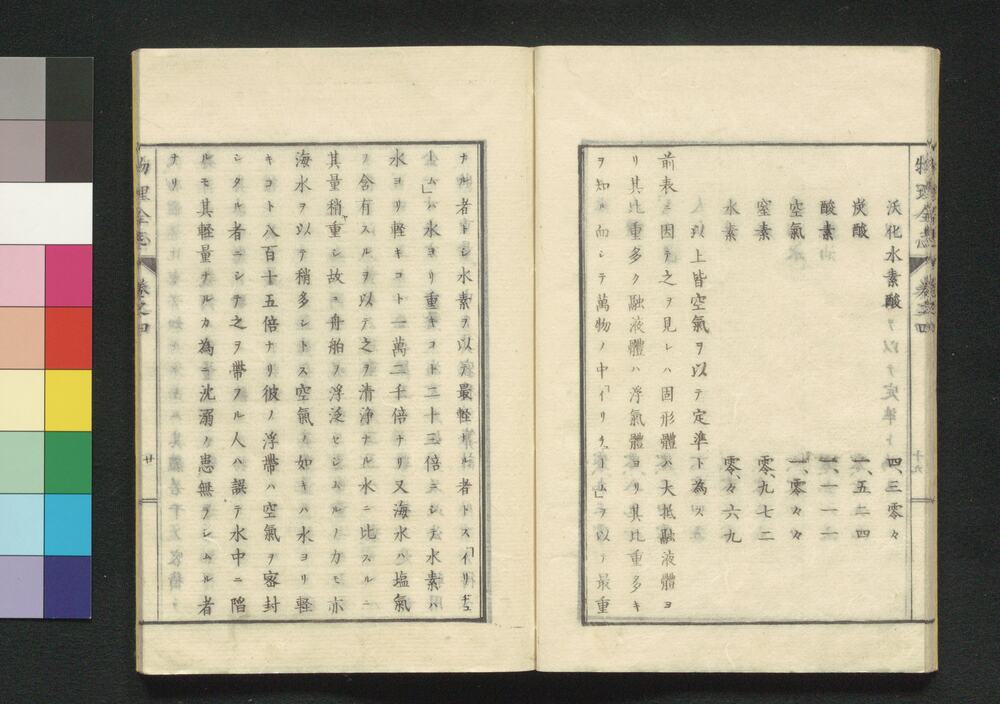 沃化水素酸 四、三零々
炭酸 一、五二四
酸素 一、一一一
空氣 一、零々々
窒素 零、九七二
水素 零、々六九
以上皆空氣ヲ以テ定準ト為ス
前表ニ因テ之ヲ見レハ固形體ハ大抵融液體ヨ
リ其比重多ク融液體ハ浮氣體ヨリ其比重多キ
ヲ知ル而シテ萬物ノ中「イリヂユム」ヲ以テ最重
ナル者トシ水素ヲ以テ最軽ナル者トス「イリヂユ
ム」ハ水ヨリ重キコト二十三倍ニシテ水素ハ
水ヨリ軽キコト一萬二千倍ナリ又海水ハ塩氣
ノ含有スルヲ以テ之ヲ清浄ナル水ニ比スルニ
其量稍重シ故ニ舟舶ノ浮泛セシムルノ力モ亦
海水ヲ以テ稍多シトス空氣ノ如キハ水ヨリ軽
キコト八百十五倍ナリ彼ノ浮帯ハ空氣ヲ密封
シタル者ニシテ之ヲ帯フル人ハ誤テ水中ニ陥
ルモ其軽量ナルカ為ニ沈溺ノ患無ラシムル者
ナリ
物理全志 巻之四 十九
物理全志 巻之四 廿